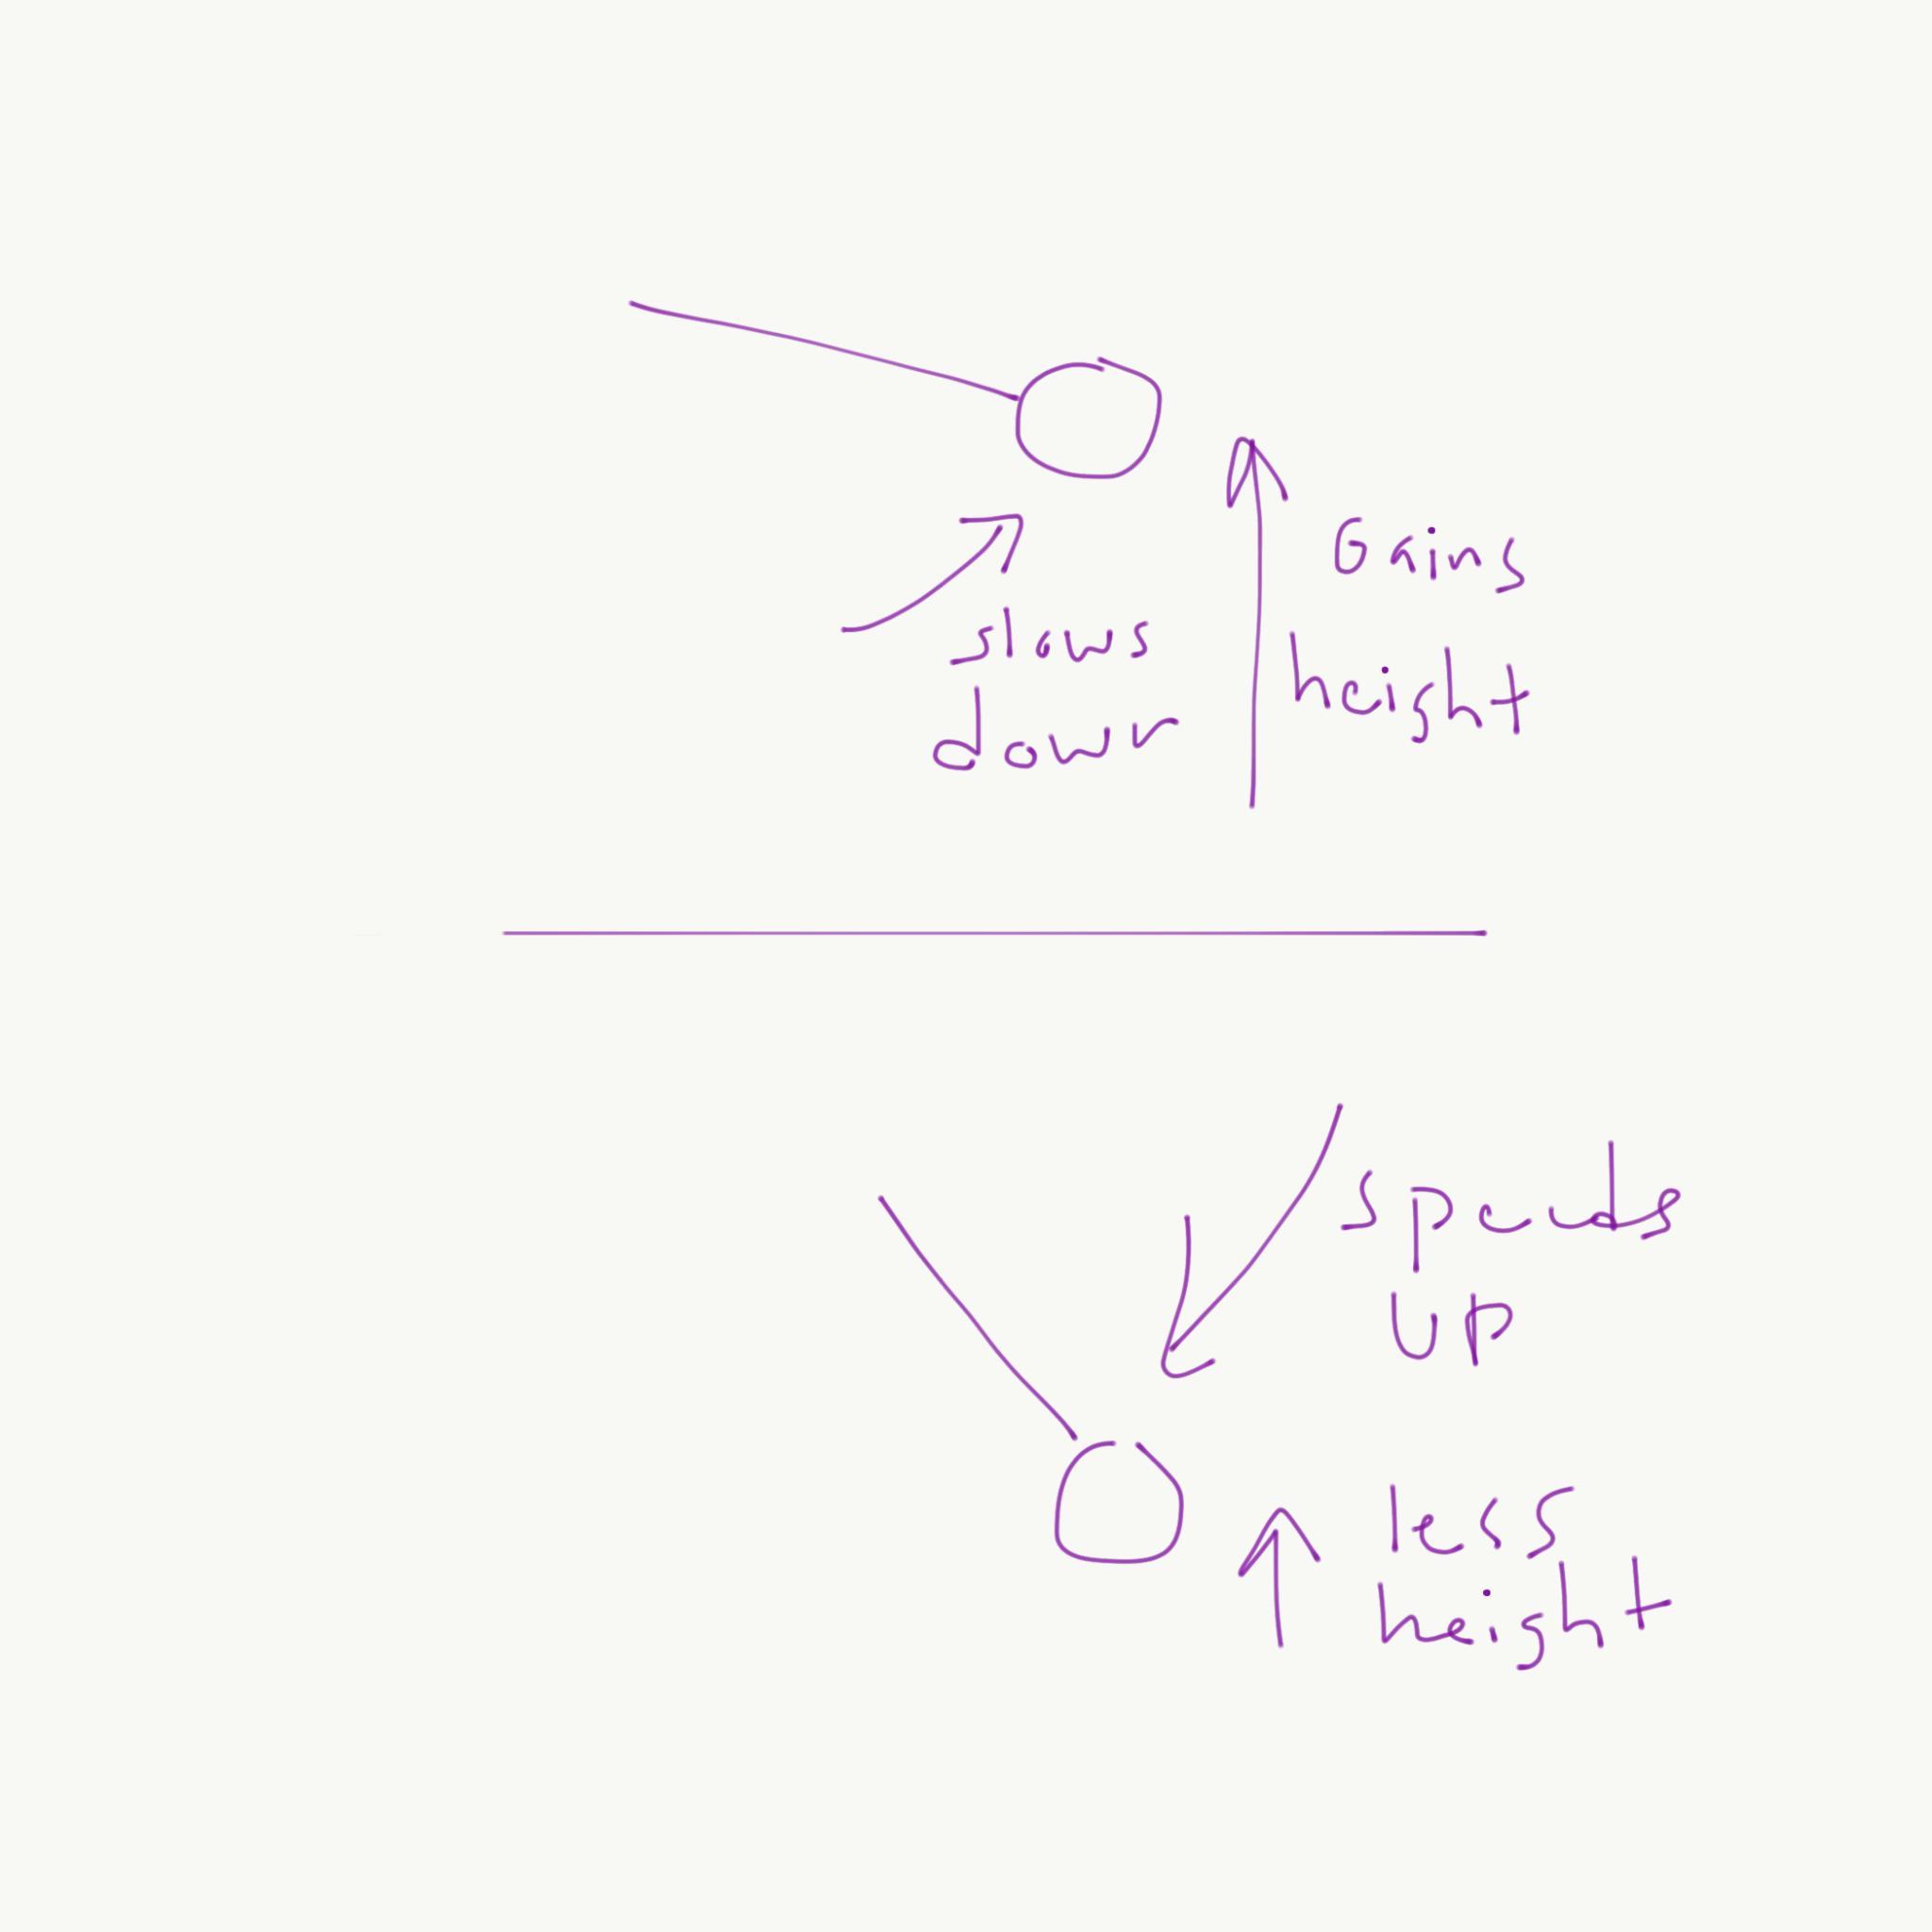 Gains
height
slows
down
speeds
UP
less
height